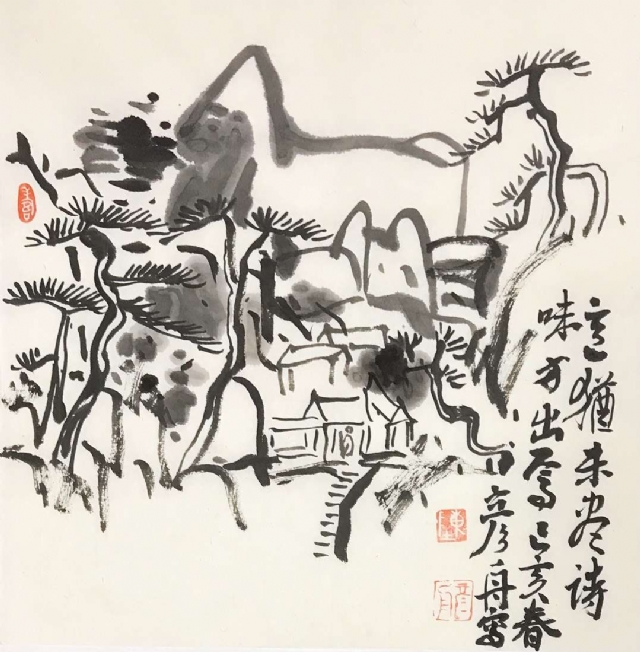 意猶未尽诗
味方出焉己亥春
彦舟写